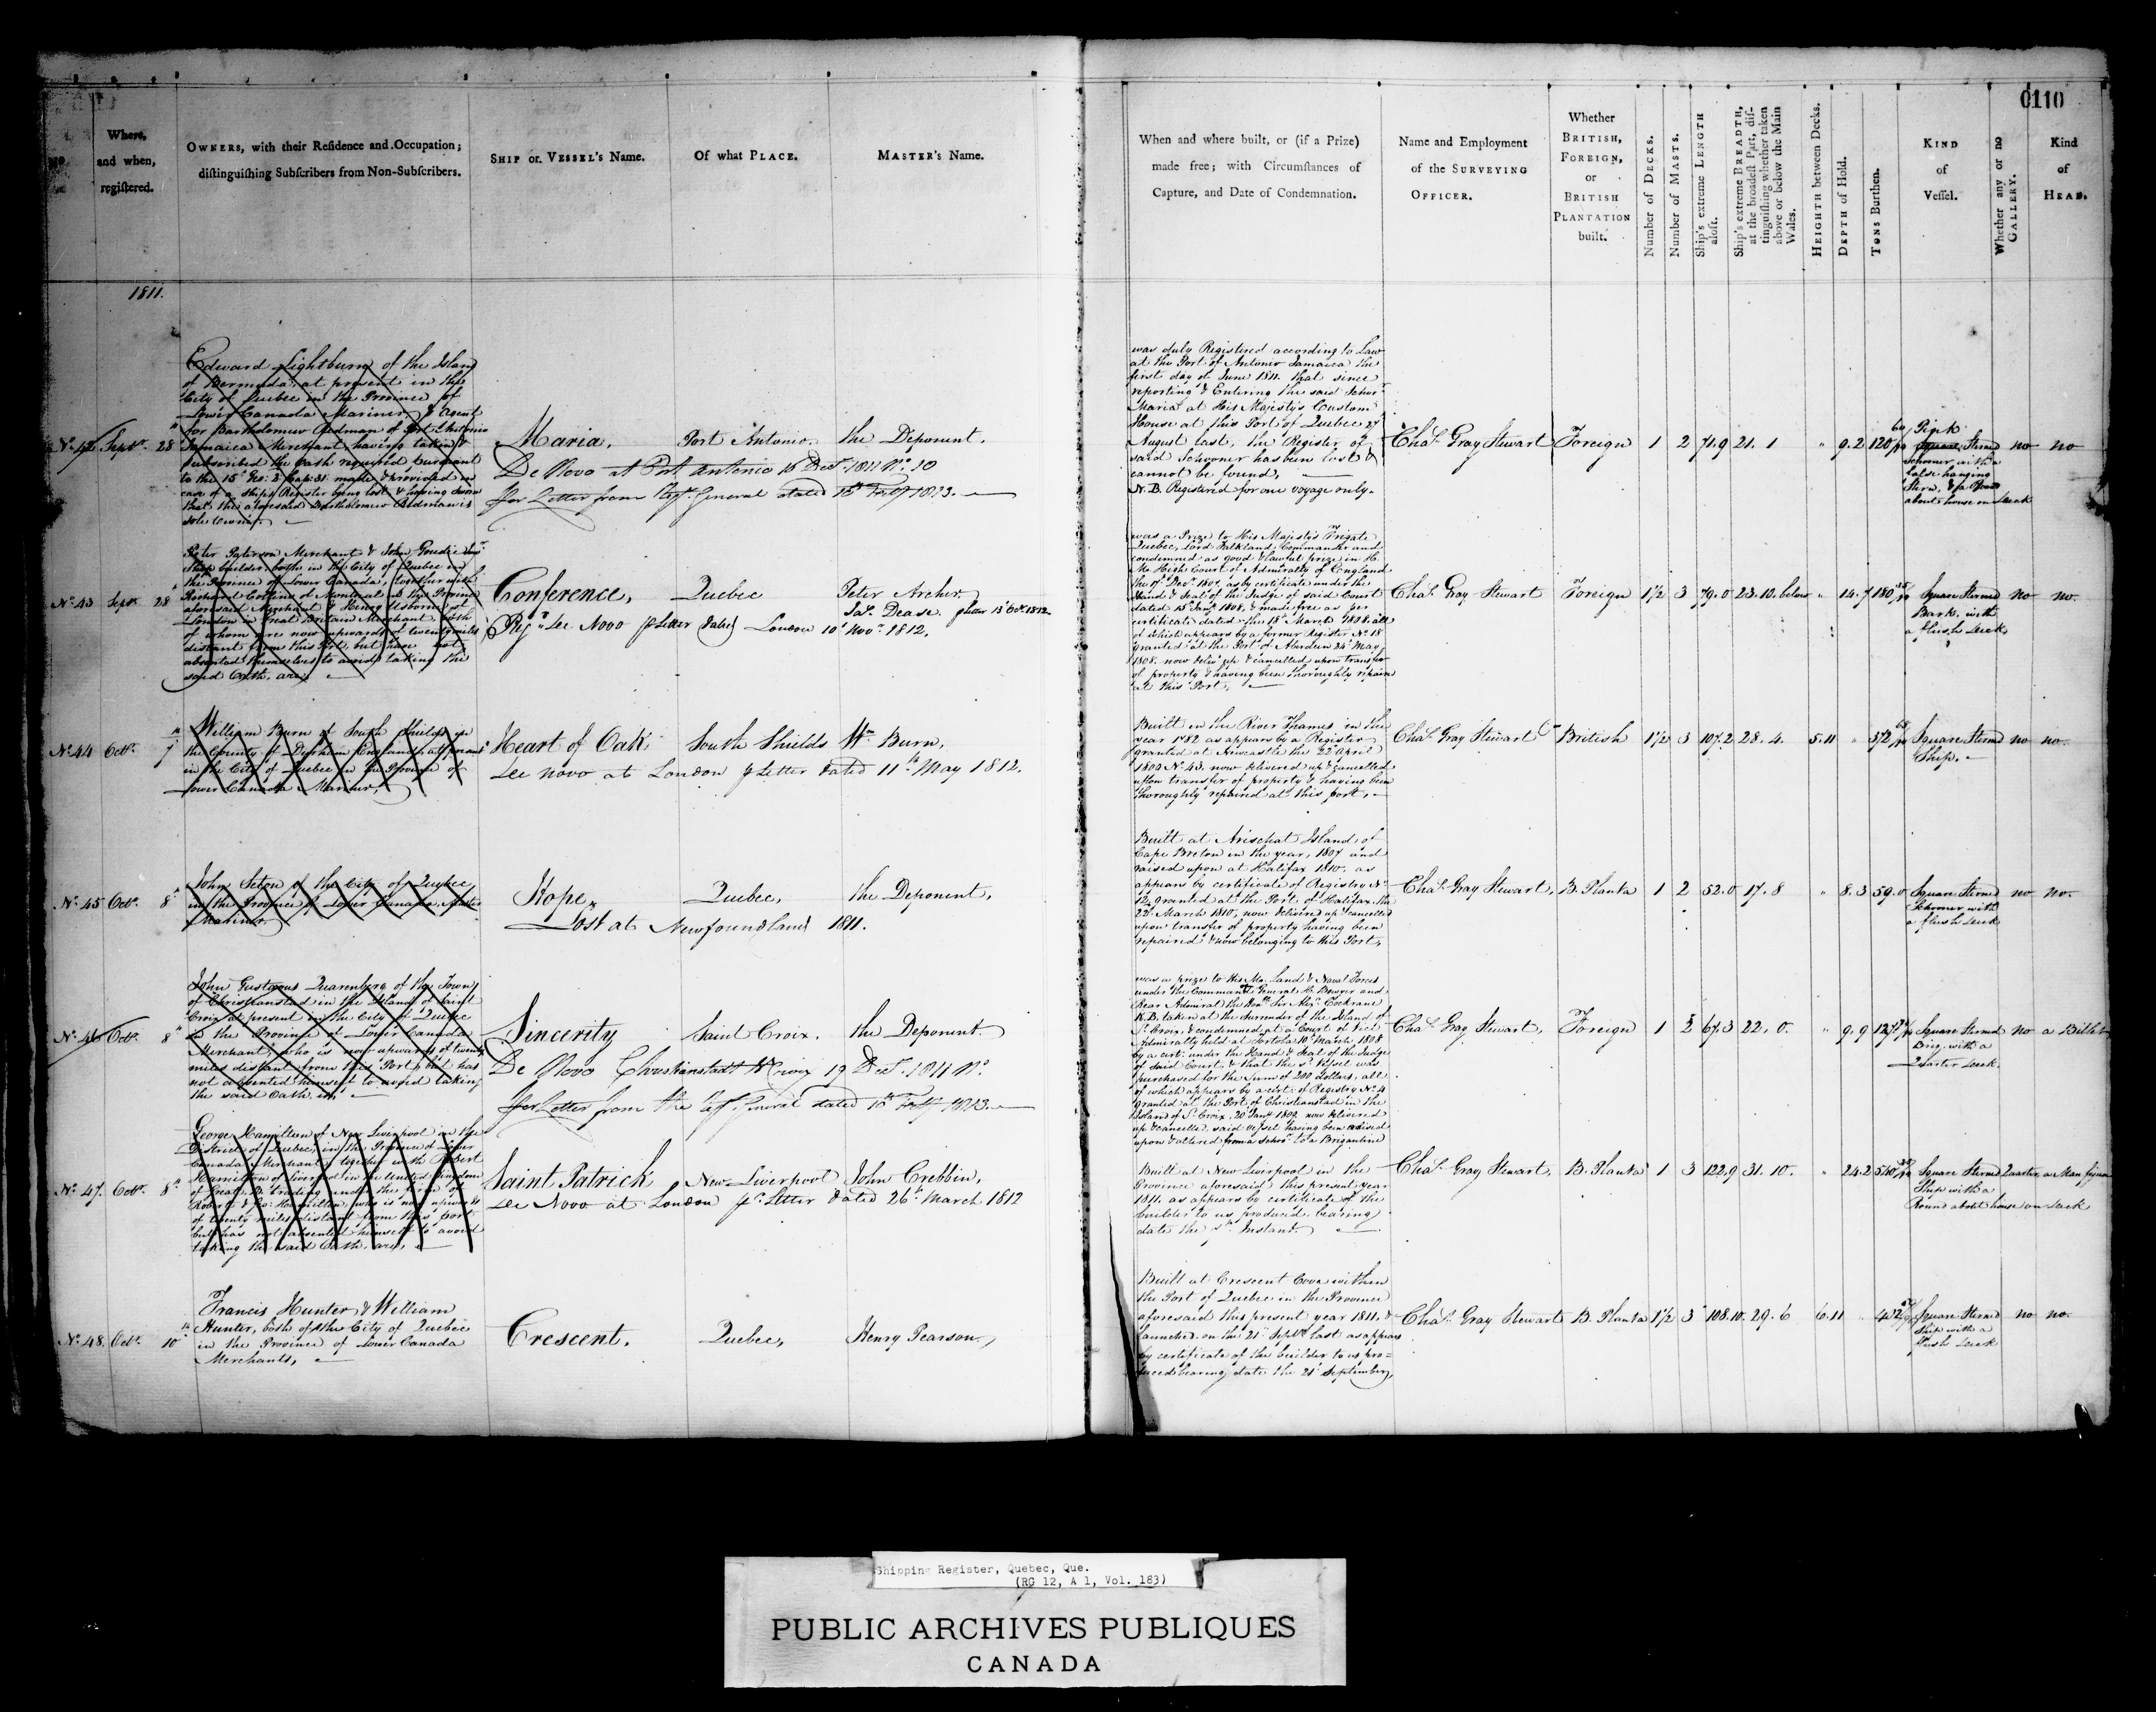 0110
No.
Where, and when, registered.
OWNERS, with their Residence and Occupation; distinguishing Subscribers from Non-Subscribers.
SHIP or VESSEL's Name.
Of what PLACE.
MASTER's Name.
When and where built, or (if a Prize) made free; with Circumstances of Capture, and Date of Condemnation.
Name and Employment of the SURVEYING OFFICER.
Whether BRITISH, FOREIGN, or BRITISH PLANTATION built.
Number of DECKS.
Number of MASTS.
Ship's extreme LENGTH aloft.
Ship's extreme BREADTH, at the broadest Part, distinguishing whether taken above or below the Main Wales.
HEIGHTH between Decks.
DEPTH of Hold.
TONS Burthen.
KIND of Vessel.
Whether any or no GALLERY.
Kind of HEAD.
1811.
No. 42 Septr. 28th
Edward Lightburn of the Island
of Bermuda, at present in the
City of Quebec in the Province of
Lower Canada Mariner, & Agent
for Bartholomew Redman of Port Antonio
Jamaica Merchant having taken &
subscribed the Oath required pursuant
to the 15th Geo: 2 Cap: 31 made & provided in
case of a Ships Register being lost & having sworn
that the aforesaid Bartholomew Redman is
sole Owner.
Maria, Port Antonio, the Deponent.
De Novo at Port Antonio 16 Decr. 1811 No. 10
per Letter from Regr. General dated 15th Feby 1813.
was duly Registered according to Law
at the Port of Antonio Jamaica the
first day of June 1811. that since
reporting & Entering the said Schor.
Maria at His Majesty's Custom
House at this Port of Quebec 27
August last, the Register of
said Schooner has been lost &
cannot be found,
N.B. Registered for one voyage only.
Chas. Gray Stewart Foreign 1 2 71.9 21. 1 " 9.2 120 60/94
Pink
Square Sterned
Schooner with a
false hanging
Stern, & a Round
about house on Deck
no no
No. 43 Septr. 28th
Peter Paterson Merchant & John Goudie Senr.
Ship builder, both in the City of Quebec in
the Province of Lower Canada, together with
Richard Collins of Montreal in the Province
aforesaid Merchant & Henry Usborne of
London in Great Britain Merchant, both
of whom are now upwards of twenty miles
distant from this Port, but have not
absented themselves to avoid taking the
said Oath, are,
Conference, Quebec Peter Archer.
Jas. Dease. pr letter 13 Octr. 1812
Regr. De Novo pr Letter dated London 10th Novr. 1812.
was a Prize to His Majesty's Frigate
Quebec, Lord Falkland, Commander and
condemned as good & lawful prize in H.
Ms. High Court of Admiralty of England
the 17th Decr. 1807, as by certificate under the
Hand & Seal of the Judge of said Court
dated 15 Jany. 1808, & made free as per
certificate dated the 18th March 1808. all
of which appears by a former Register No. 18
granted at the Port of Aberdeen 24 May
1808. now deliv'd up & cancelled upon transfer
of property & having been thoroughly repaired
at this Port,
Chas. Gray Stewart Foreign 1½ 3 79.0 23.10. below " 14.7 180
Square Sterned
Bark, with
a flush Deck
no no.
No. 44 Octr. 7th
William Burn of South Shields in
the County of Durham England, at present
in the City of Quebec in the Province of
Lower Canada Mariner,
Heart of Oak, South Shields Wm. Burn,
De novo at London pr Letter dated 11th May 1812.
Built in the River Thames in the
year 1782 as appears by a Register
granted at Newcastle the 22d April
1809 No. 43. now delivered up & cancelled
upon transfer of property & having been
thoroughly repaired at this port,
Chas. Gray Stewart British 1½ 3 107.2 28. 4. 5.11 " 372
Square Sterned
Ship.
no no.
No. 45 Octr. 8th
John Seton of the City of Quebec,
in the Province of Lower Canada, Master
Mariner.
Hope, Quebec, the Deponent,
Lost at Newfoundland 1811.
Built at Arischat Island, of
Cape Breton in the year, 1807 and
raised upon at Halifax 1810, as
appears by certificate of Registry No.
12 granted at the Port of Halifax, the
22d. March 1810, now delivered up & cancelled
upon transfer of property having been
repaired & now belonging to this Port,
Chas. Gray Stewart, B. Planta 1 2 52.0 17. 8 " 8.3 59.0
Square Sterned
Schooner with
a flush Deck
no no.
No. 46 Octr. 8th
John Gustavus Quarenberg of the Town
of Christianstad in the Island of Saint
Croix at present in the City of Quebec
in the Province of Lower Canada
Merchant, who is now upwards of twenty
miles distant from this Port, but has
not absented himself to avoid taking
the said Oath, is,
Sincerity Saint Croix. the Deponent
De Novo Christianstadt St Croix 19 Decr. 1811 No.
per Letter from the Regr. General dated 15th Feby 1813.
was a prize to His Ms. Land & Naval Forces
under the Command General H. Bowyer and
Rear Admiral the Honble Sir Alexr. Cochrane
K.B. taken at the Surrender of the Island of
St. Croix, & condemned at a Court of Vice
Admiralty held at Tortola 10 March 1808
by a cert: under the Hand & Seal of the Judge
of said Court, & that the sd. Vessel was
purchased for the Sum of 200 dollars, all
of which appears by a cert. of Registry No. 4
granted at the Port of Christianstad in the
Island of St. Croix, 20 Jany 1809 now delivered
up & cancelled, said Vessel having been raised
upon & altered from a Schor. to a Brigantine
Chas. Gray Stewart, Foreign 1 2 67.3 22. 0. " 9.9 127
Square Sterned
Brig. with a
Quarter Deck.
no a Billet
No. 47. Octr. 8th
George Hamilton of New Liverpool in the
District of Quebec, in the Province of Lower
Canada Merchant, together with Robert
Hamilton of Liverpool in the United Kingdom
of Great B. trading under the Firm of
Robert & Go: Hamilton, who is now upwards
of twenty miles distant from this port
but has not absented himself to avoid
taking the said Oath, are,
Saint Patrick New Liverpool John Crebbin,
De Novo at London pr. Letter dated 26th March 1812
Built at New Liverpool in the
Province aforesaid, this present year
1811. as appears by certificate of the
builder to us produced, bearing
date the 7th. Instant.
Chas. Gray Stewart, B. Planta 1 3 122.9 31. 10. " 24.2 540
Square Sterned
Ship with a
Round about house on Deck
Quarter a Man figure
No. 48. Octr. 10th
Francis Hunter, & William
Hunter, both of the City of Quebec
in the Province of Lower Canada
Merchants,
Crescent, Quebec, Henry Pearson,
Built at Crescent Cove within
the Port of Quebec in the Province
aforesaid this present year 1811, &
launched on the 21st Septr. last as appears
by certificate of the builder to us pro=
duced bearing date the 21st September,
Chas. Gray Stewart B. Planta 1½ 3 108.10. 29. 6 6.11 " 432
Square Sterned
Ship with a
flush Deck
no no.
Shipping Register, Quebec, Que.
(RG 12, A 1, Vol. 183)
PUBLIC ARCHIVES PUBLIQUES
CANADA